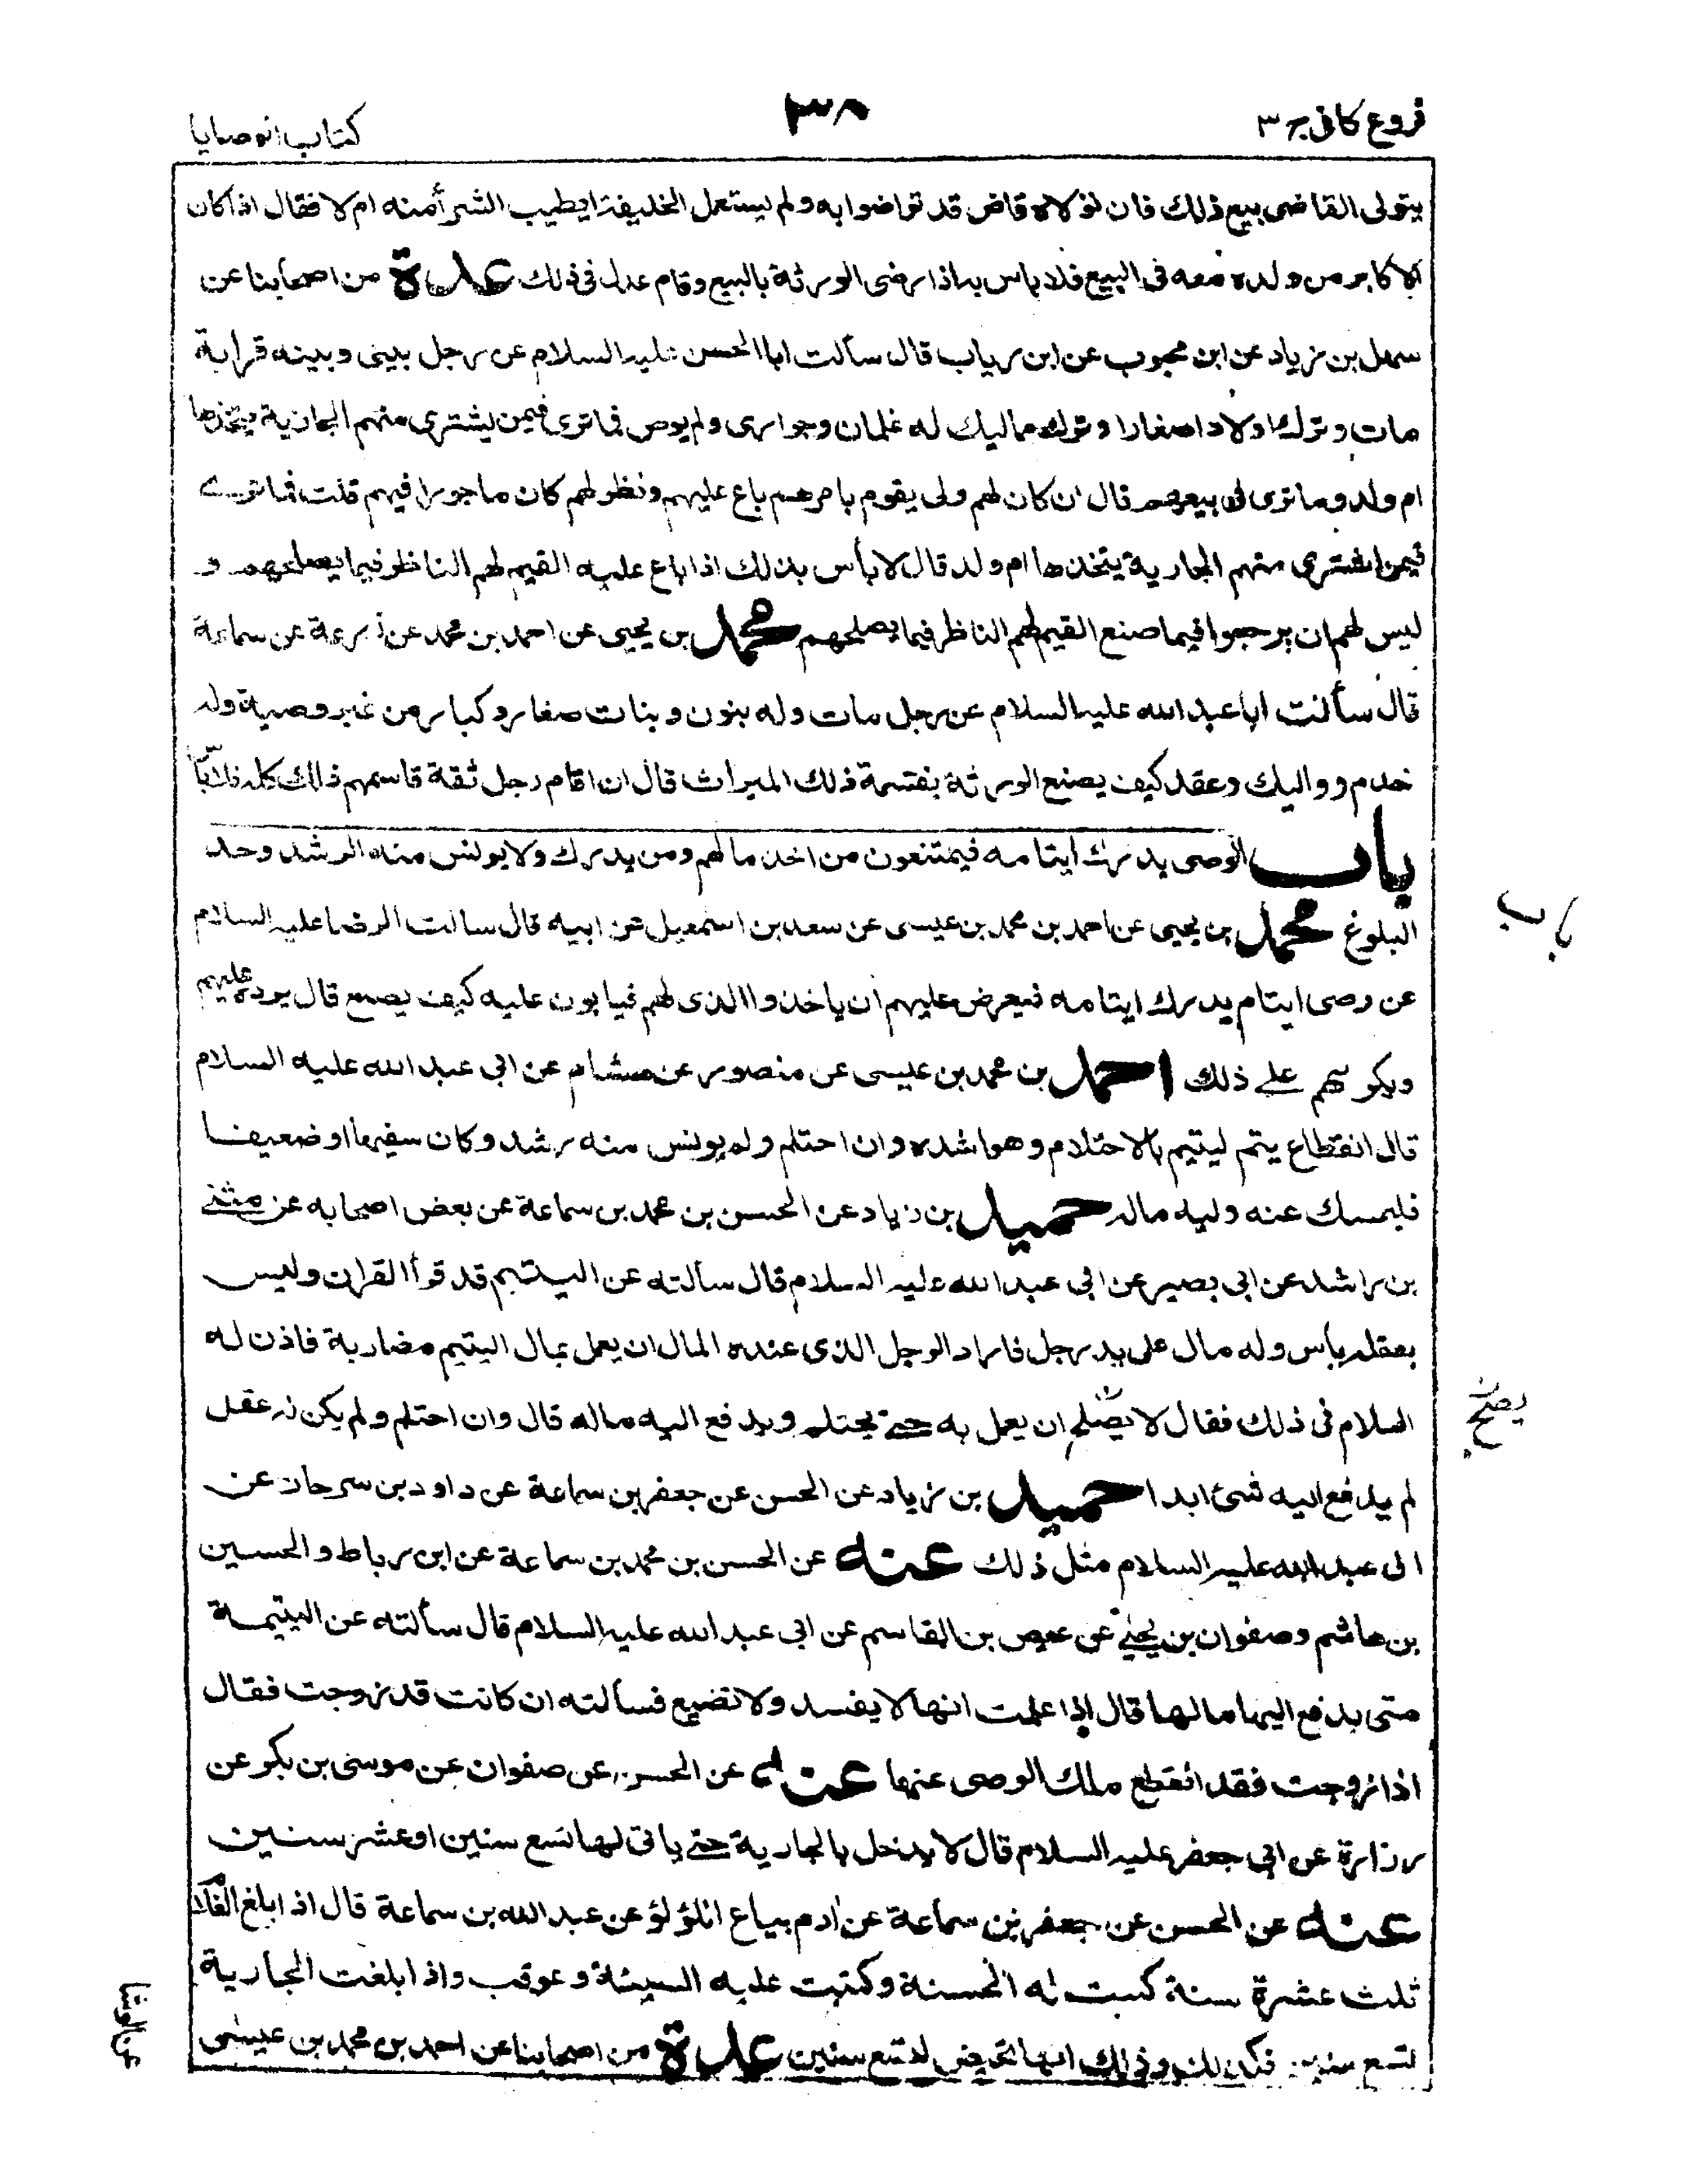 فروع كافى ج ٣
٣٨
كتاب الوصايا
يتولى القاضى بيع ذلك فان تولاه قاض قد تراضوا به ولم يستعمل الخليفة ايطيب الشراء منه ام لا فقال اذا كان
الاكابر من ولده معه فى البيع فلا باس به اذا رضى الورثة بالبيع وقام عدل فى ذلك عدة من اصحابنا عن
سهل بن زياد عن ابن محبوب عن ابن رياب قال سألت ابا الحسن عليه السلام عن رجل بينى وبينه قرابة
مات وترك اولادا صغارا وترك مماليك له غلمان وجوارى ولم يوص فما ترى فيمن يشترى منهم الجارية يتخذها
ام ولد وما ترى فى بيعهم قال ان كان لهم ولى يقوم بامرهم باع عليهم ونظر لهم كان ماجورا فيهم قلت فما ترى
فيمن اشترى منهم الجارية يتخذها ام ولد قال لا بأس بذلك اذا باع عليه القيم لهم الناظر فيما يصلحهم و
ليس لهم ان يرجعوا فيما صنع القيم لهم الناظر فيما يصلحهم محمد بن يحيى عن احمد بن محمد عن زرعة عن سماعة
قال سألت ابا عبد الله عليه السلام عن رجل مات وله بنون وبنات صغار وكبار من غير وصية وله
خدم ومماليك وعقد كيف يصنع الورثة بقسمة ذلك الميراث قال ان اقام رجل ثقة قاسمهم ذلك كله فلا بأس
باب الوصى يدرك ايتامه فيمتنعون من اخذ مالهم ومن يدرك ولا يونس منه الرشد وحد
البلوغ محمد بن يحيى عن احمد بن محمد بن عيسى عن سعد بن اسمعيل عن ابيه قال سالت الرضا عليه السلام
عن وصى ايتام يدرك ايتامه فيعرض عليهم ان ياخذوا الذى لهم فيابون عليه كيف يصنع قال يرده عليهم
ويكرههم على ذلك احمد بن محمد بن عيسى عن منصور عن هشام عن ابى عبد الله عليه السلام
قال انقطاع يتم ليتيم بالاحتلام وهو اشده وان احتلم ولم يونس منه رشد وكان سفيها او ضعيفا
فليمسك عنه وليه ماله حميد بن زياد عن الحسن بن محمد بن سماعة عن بعض اصحابه عن مثنى
بن راشد عن ابى بصير عن ابى عبد الله عليه السلام قال سألته عن اليتيم قد قرأ القران وليس
بعقله بأس وله مال على يد رجل فاراد الرجل الذى عنده المال ان يعمل بمال اليتيم مضاربة فاذن له
السلام فى ذلك فقال لا يصلح ان يعمل به حتى يحتلم ويدفع اليه ماله قال وان احتلم ولم يكن له عقل
لم يدفع اليه شئ ابدا حميد بن زياد عن الحسن عن جعفر بن سماعة عن داود بن سرحان عن
ابى عبد الله عليه السلام مثل ذلك عنه عن الحسن بن محمد بن سماعة عن ابن رباط والحسين
بن هاشم وصفوان بن يحيى عن عيص بن القاسم عن ابى عبد الله عليه السلام قال سألته عن اليتيمة
متى يدفع اليها مالها قال اذا علمت انها لا يفسد ولا تضيع فسألته ان كانت قد تزوجت فقال
اذا تزوجت فقد انقطع ملك الوصى عنها عنه عن الحسن عن صفوان عن موسى بن بكر عن
زرارة عن ابى جعفر عليه السلام قال لا يدخل بالجارية حتى ياتى لها تسع سنين او عشر سنين
عنه عن الحسن عن جعفر بن سماعة عن ادم بياع اللؤلؤ عن عبد الله بن سماعة قال اذا بلغ الغلام
ثلث عشرة سنة كتبت له الحسنة وكتبت عليه السيئة وعوقب واذا بلغت الجارية
لتسع سنين فكذلك وذلك انها تحيض لتسع سنين عدة من اصحابنا عن احمد بن محمد بن عيسى
باب
يصلح
عن الوشا